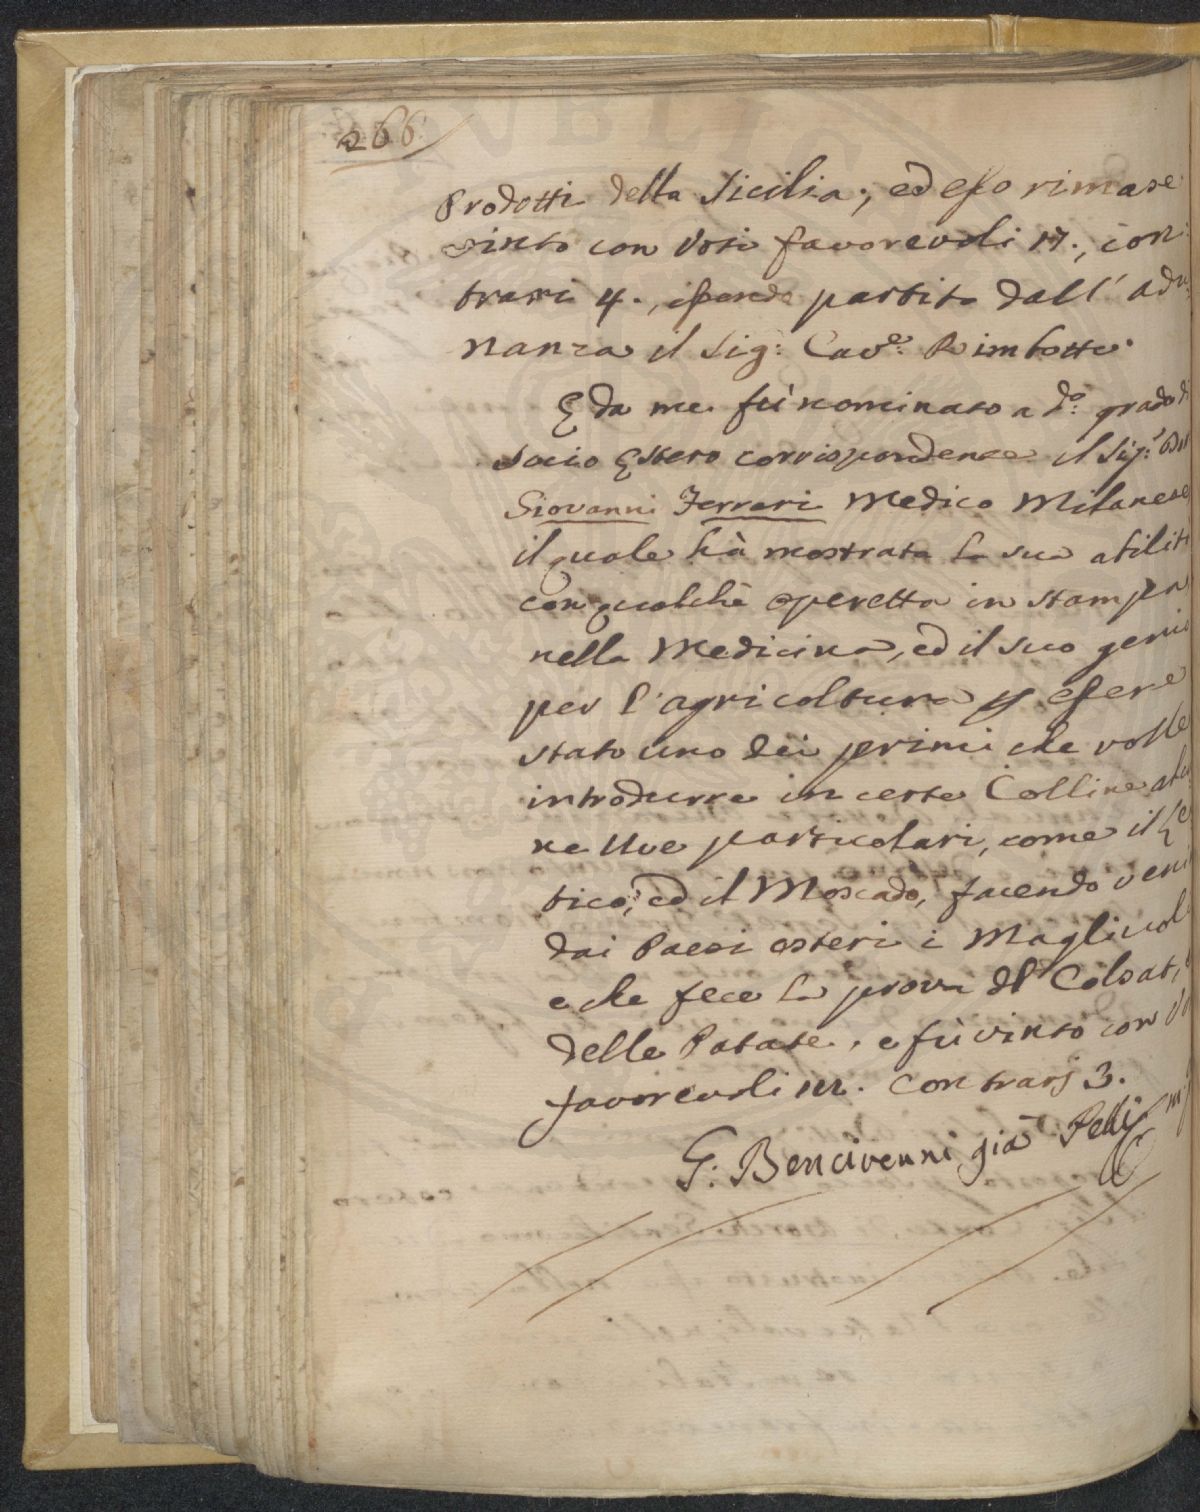 266.
Prodotti della Sicilia; ed esso rimase
vinto con Voti favorevoli 17., con:
trari 4., essendo partito dall' adu:
nanza il Sig: Cav.e: Rimbotti.
E da me fù nominato a d.o: grado di
Socio Estero corrispondente il Sig.r
Giovanni Ferrari Medico Milanese
il quale hà mostrata la sua abilità
con qualchè operetta in stampa
nella Medicina, ed il suo genio
per l'agricoltura p essere
stato uno dei primi che volle
introdurre in certe Colline alcu
ne Uve particolari, come il Le
tico, ed il Moscado, facendo venir
dai Paesi esteri i Magliuoli
e che fece la prova dl Colsat, e
delle Patate, e fù vinto con Voti
favorevoli contrarj 3.
G: Bencivenni già Pelli